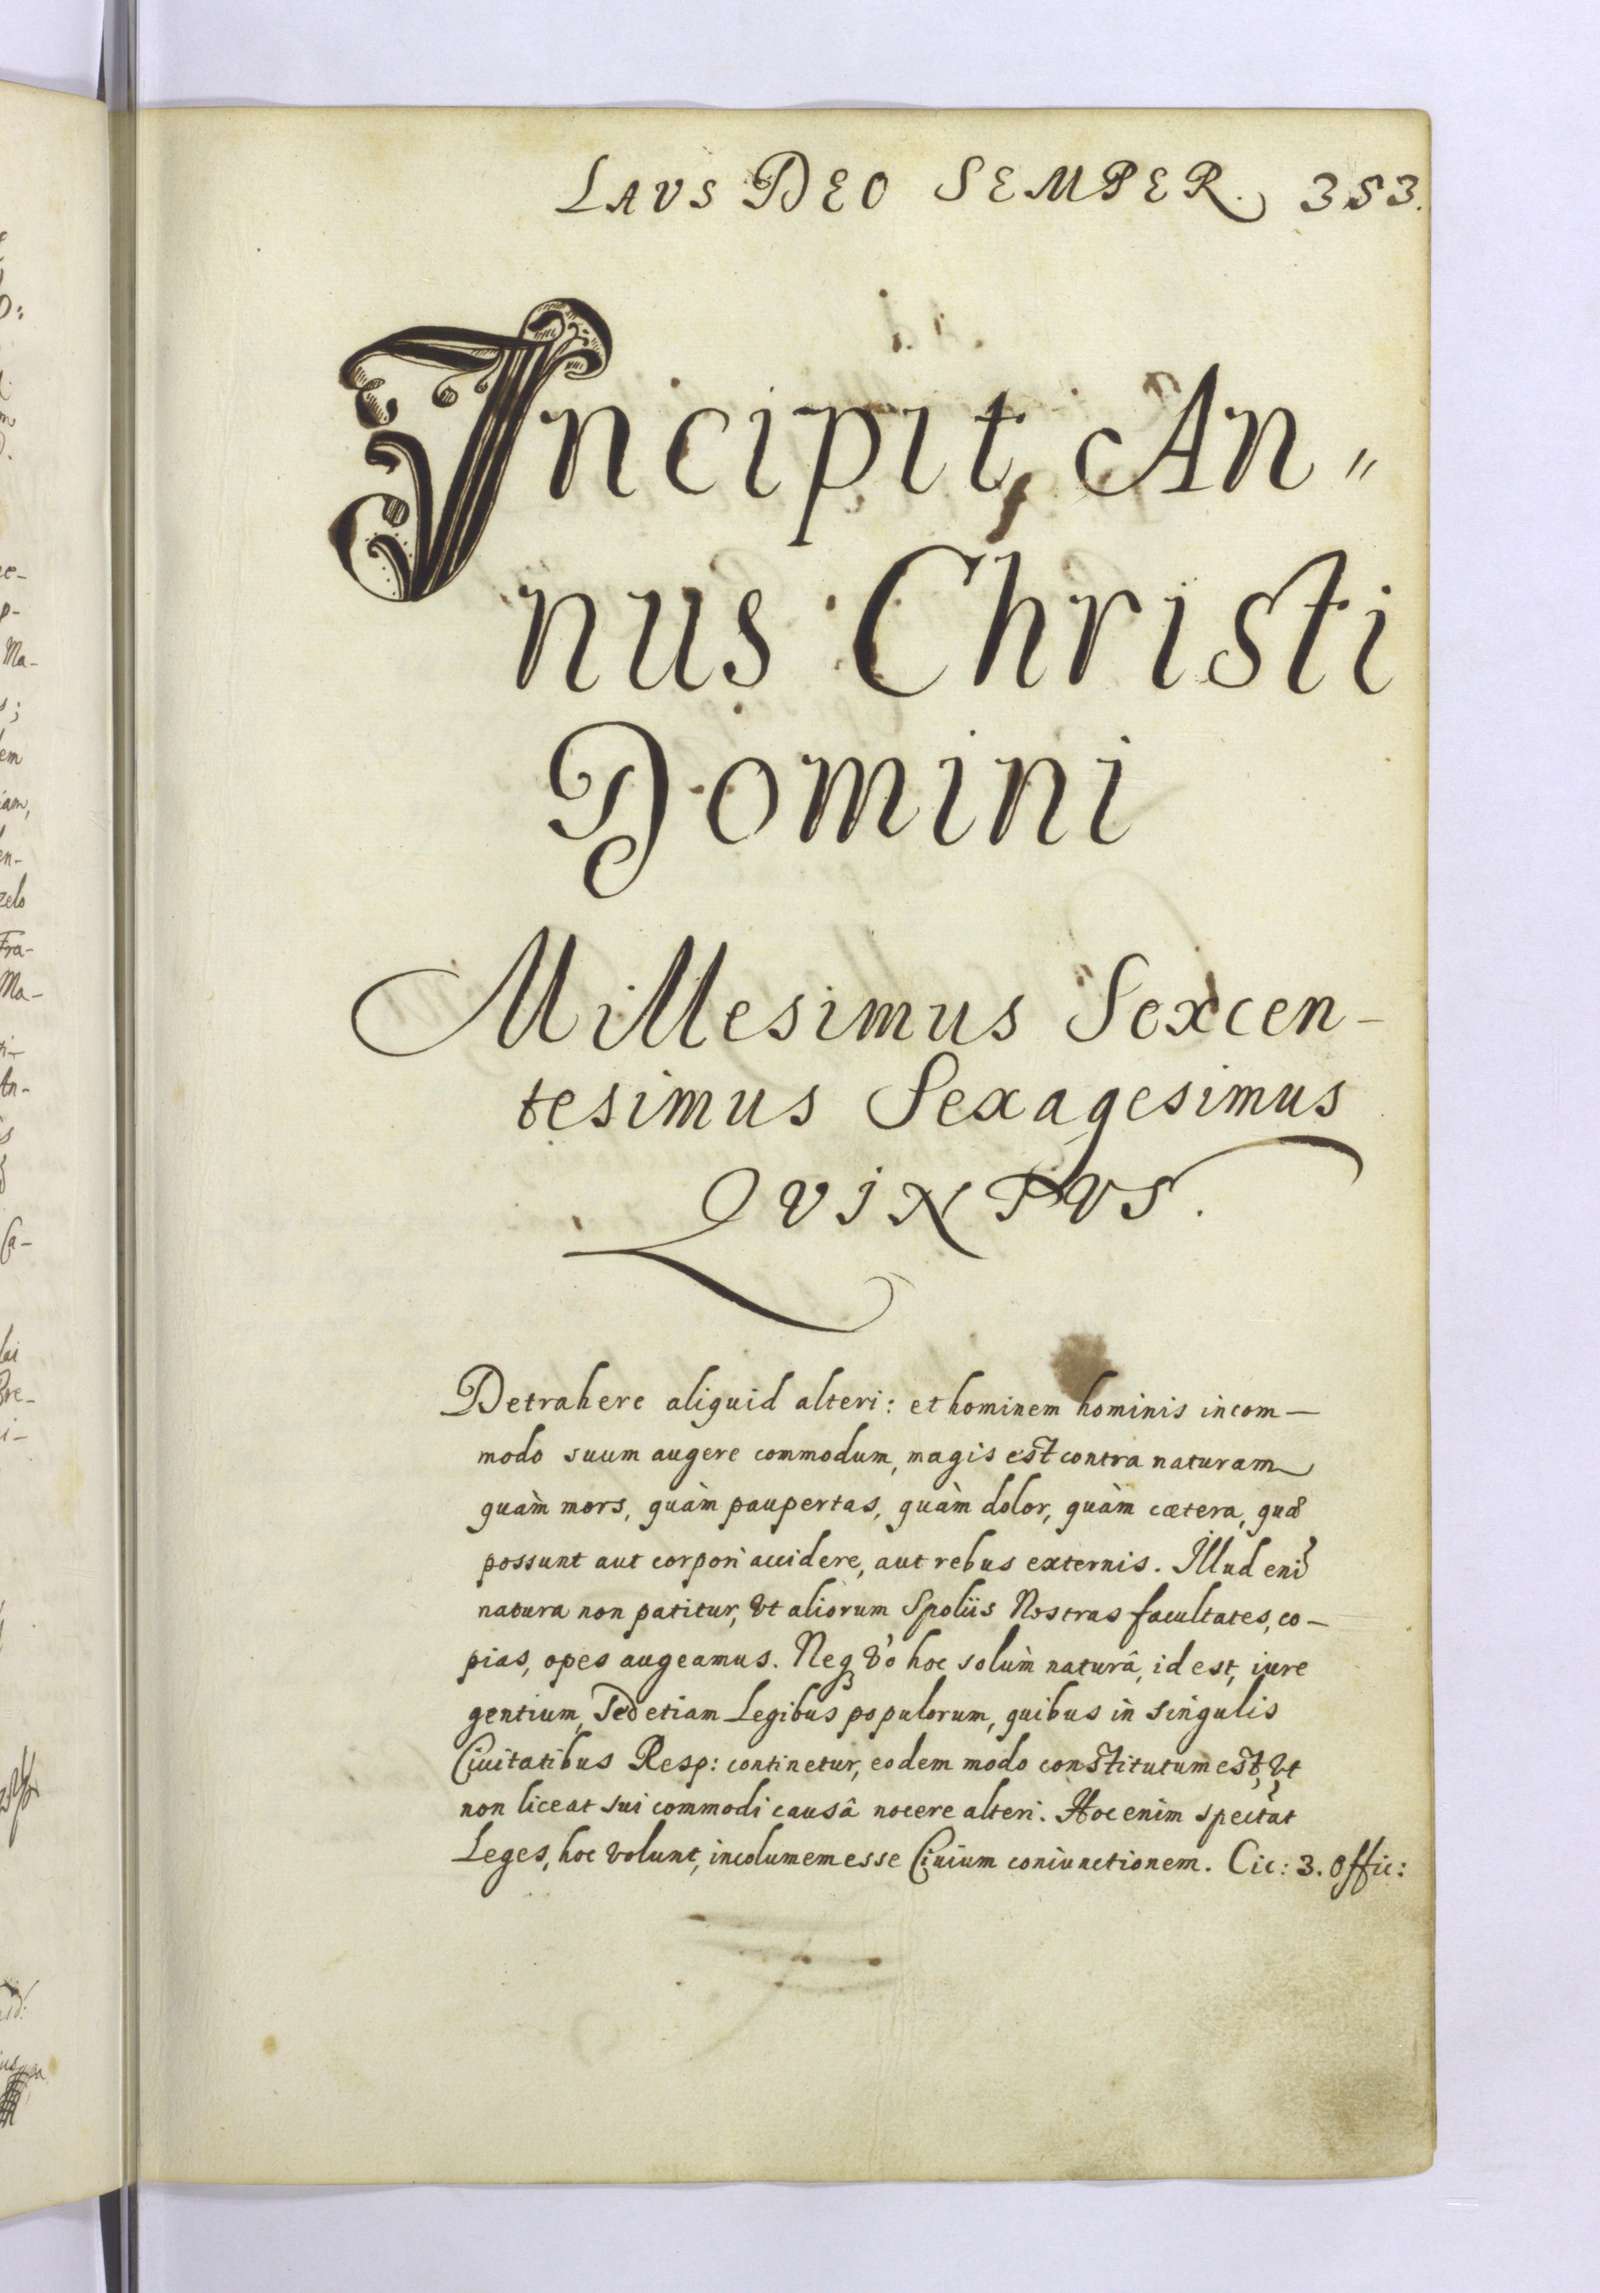 LAVS DEO SEMPER. 353.
Incipit An„
nus Christi
Domini
Millesimus Sexcen-
tesimus Sexagesimus
QVINTVS.
Detrahere aliquid alteri: et hominem hominis incom-
modo suum augere commodum, magis est contra naturam
quàm mors, quàm paupertas, quàm dolor, quàm cætera, quæ
possunt aut corpori accidere, aut rebus externis. Illud eni
natura non patitur, vt aliorum Spoliis Nostras facultates, co-
pias, opes augeamus. Neq vo hoc solùm naturâ, id est, iure
gentium, Sed etiam Legibus populorum, quibus in singulis
Ciuitatibus Resp: continetur, eodem modo constitutum est, vt
non liceat sui commodi causâ nocere alteri. Hoc enim spectat
Leges, hoc volunt, incolumem esse Ciuium coniunctionem. Cic: 3. Offic: